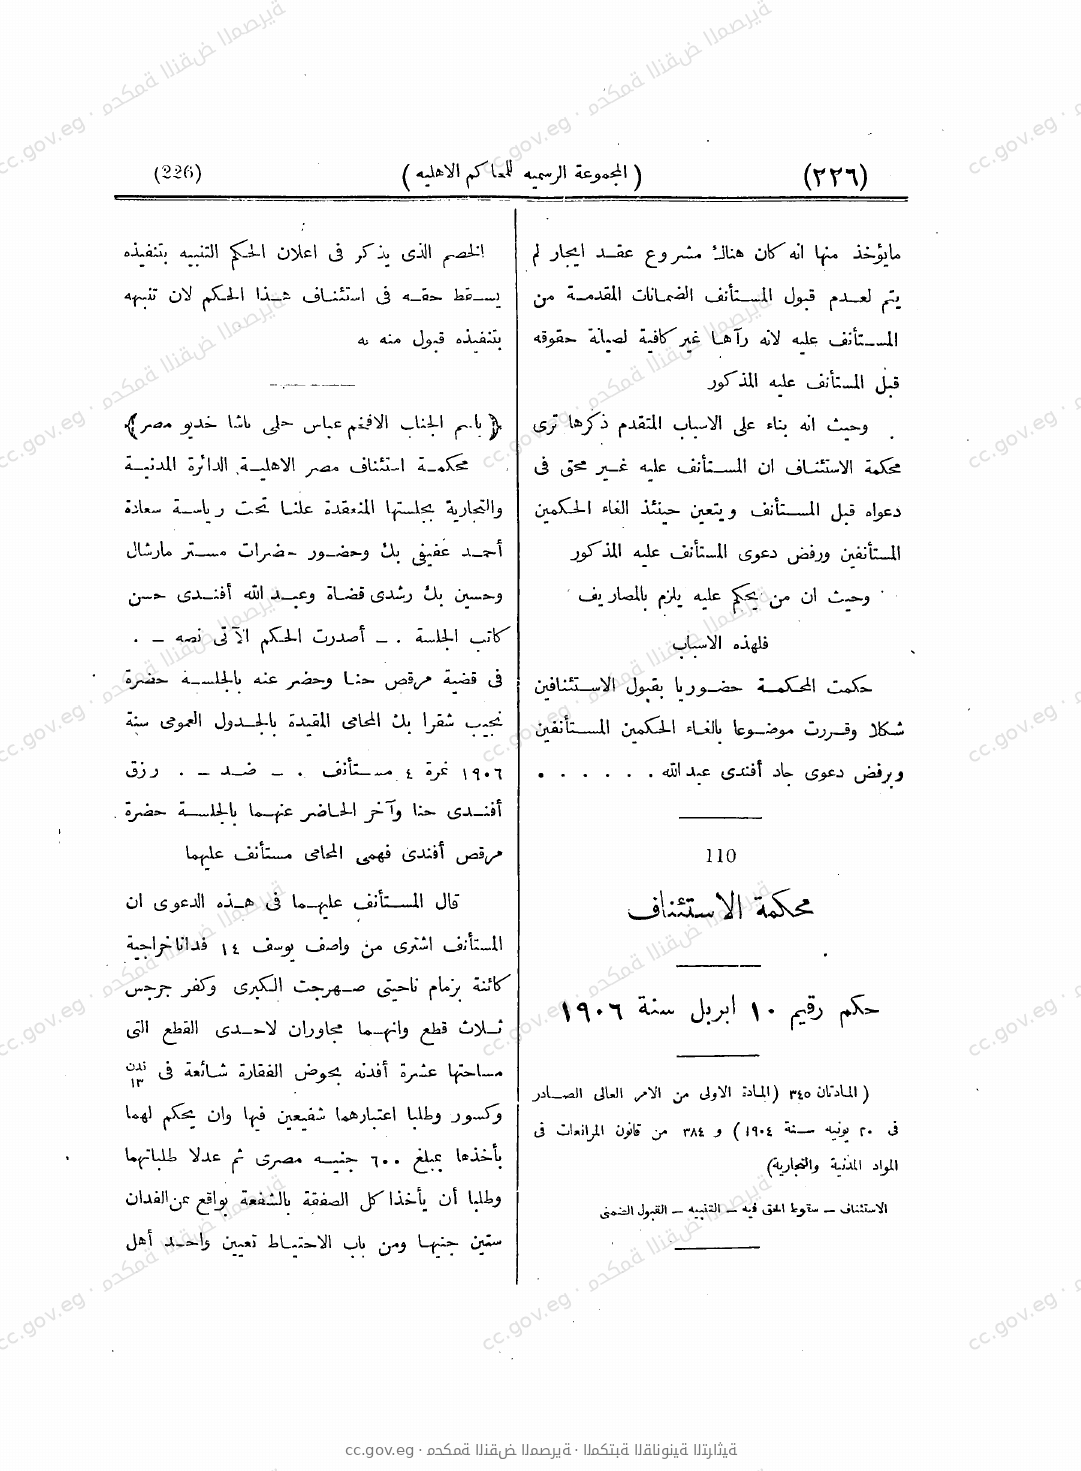 (٢٢٦)
( المجموعة الرسميه للمحاكم الاهليه )
(226)
مايؤخذ منها انه كان هناك مشروع عقد ايجار لم
يتم لعدم قبول المستأنف الضمانات المقدمة من
المستأنف عليه لانه رآها غير كافية لصيانة حقوقه
قبل المستأنف عليه المذكور
وحيث انه بناء على الاسباب المتقدم ذكرها ترى
محكمة الاستئناف ان المستأنف عليه غير محق فى
دعواه قبل المستأنف ويتعين حينئذ الغاء الحكمين
المستأنفين ورفض دعوى المستأنف عليه المذكور
وحيث ان من يحكم عليه يلزم بالمصاريف
فلهذه الاسباب
حكمت المحكمة حضوريا بقبول الاستئنافين
شكلا وقررت موضوعا بالغاء الحكمين المستأنفين
وبرفض دعوى جاد أفندى عبد الله . . . . . .
110
محكمة الاستئناف
حكم رقيم ١٠ ابريل سنة ١٩٠٦
( المادتان ٣٤٥ (المادة الاولى من الامر العالى الصادر
فى ٢٠ يونيه سنة ١٩٠٤) و ٣٨٤ من قانون المرافعات فى
المواد المدنية والتجارية)
الاستئناف – سقوط الحق فيه – التنبيه – القبول الضمنى
الخصم الذى يذكر فى اعلان الحكم التنبيه بتنفيذه
يسقط حقه فى استئناف هذا الحكم لان تنبيهه
بتنفيذه قبول منه به
﴿ باسم الجناب الافخم عباس حلمى باشا خديو مصر ﴾
محكمة استئناف مصر الاهلية الدائرة المدنية
والتجارية بجلستها المنعقدة علنا تحت رياسة سعادة
أحمد عفيفى بك وحضور حضرات مستر مارشال
وحسين بك رشدى قضاة وعبد الله أفندى حسن
كاتب الجلسة . – أصدرت الحكم الآتى نصه – .
فى قضية مرقص حنا وحضر عنه بالجلسة حضرة
نجيب شقرا بك المحامى المقيدة بالجدول العمومى سنة
١٩٠٦ نمرة ٤ مستأنف . – ضد – . رزق
أفندى حنا وآخر الحاضر عنهما بالجلسة حضرة
مرقص أفندى فهمى المحامى مستأنف عليهما
قال المستأنف عليهما فى هذه الدعوى ان
المستأنف اشترى من واصف يوسف ١٤ فدانا خراجية
كائنة بزمام ناحيتى صهرجت الكبرى وكفر جرجس
ثلاث قطع وانهما مجاوران لاحدى القطع التى
مساحتها عشرة أفدنه بحوض الفقارة شائعة فى ١٣ فدن
وكسور وطلبا اعتبارهما شفيعين فيها وان يحكم لهما
بأخذها بمبلغ ٦٠٠ جنيه مصرى ثم عدلا طلباتهما
وطلبا أن يأخذا كل الصفقة بالشفعة بواقع عن الفدان
ستين جنيها ومن باب الاحتياط تعيين واحد أهل
cc.gov.eg · محكمة النقض المصرية · المكتبة القانونية التراثية